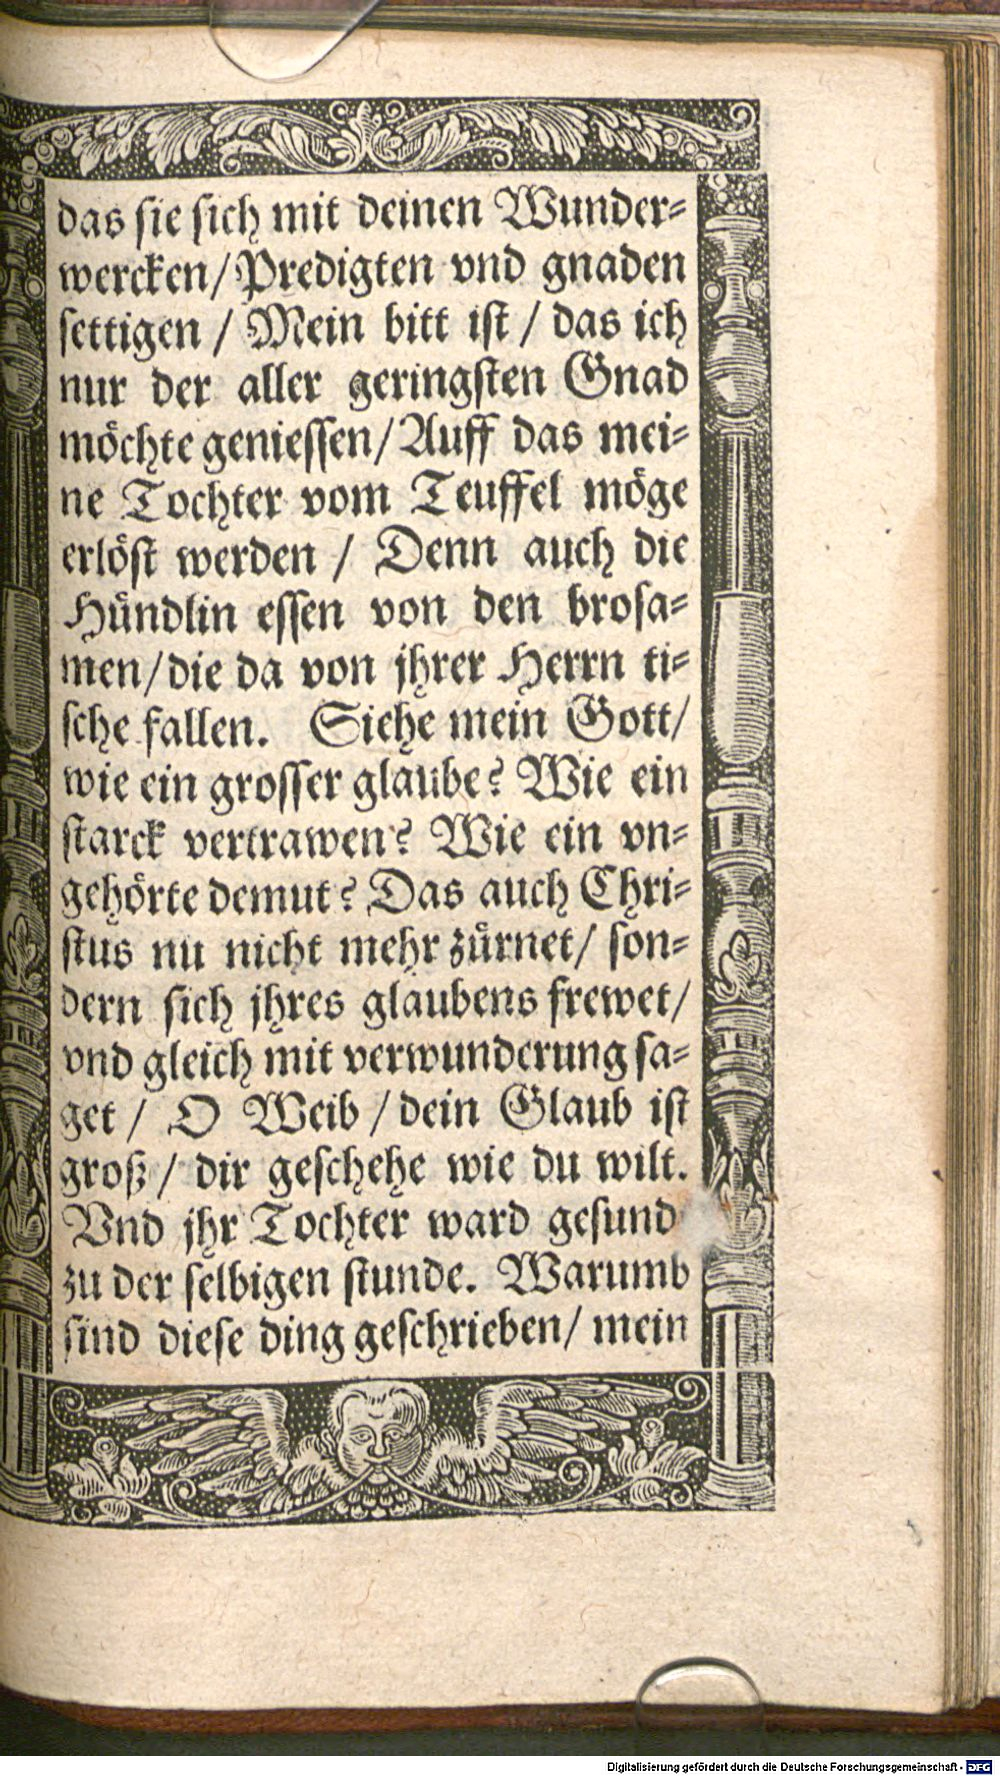 das sie sich mit deinen Wunder-
wercken/ Predigten vnd gnaden
settigen / Mein bitt ist / das ich
nur der aller geringsten Gnad
möchte geniessen/ Auff das mei-
ne Tochter vom Teuffel möge
erlöst werden / Denn auch die
Hündlin essen von den brosa-
men/ die da von jhrer Herrn ti-
sche fallen. Siehe mein Gott/
wie ein grosser glaube? Wie ein
starck vertrawen? Wie ein vn-
gehörte demut? Das auch Chri-
stus nu nicht mehr zürnet/ son-
dern sich jhres glaubens frewet/
vnd gleich mit verwunderung sa-
get / O Weib / dein Glaub ist
groß / dir geschehe wie du wilt.
Vnd jhr Tochter ward gesund
zu der selbigen stunde. Warumb
sind diese ding geschrieben/ mein
Digitalisierung gefördert durch die Deutsche Forschungsgemeinschaft - DFG